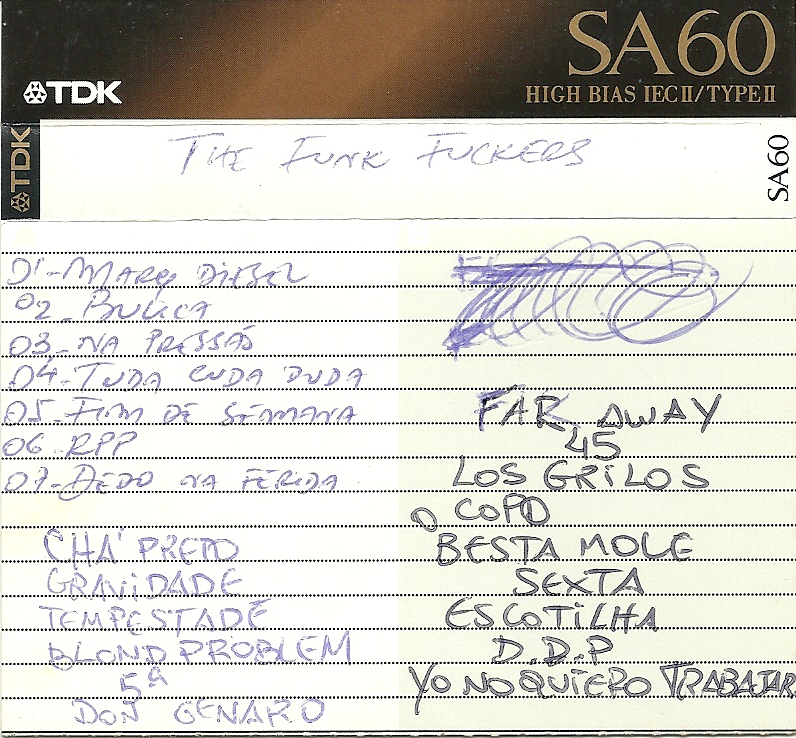 SA60
TDK
HIGH BIAS IECII/TYPEII
TDK
THE FUNK FUCKERS
SA60
01-MARY DIESEL
02-
03-NA PRESSÃO
04-TUDA CUDA DUDA
05-FIM DE SEMANA
06-RPP
07-DEDO NA FERIDA
CHÁ PRETO
GRAVIDADE
TEMPESTADE
BLOND PROBLEM
5ª
DON GENARO
FAR AWAY
45
LOS GRILOS
O COPO
BESTA MOLE
SEXTA
ESCOTILHA
D.D.P
YO NO QUIERO TRABAJAR